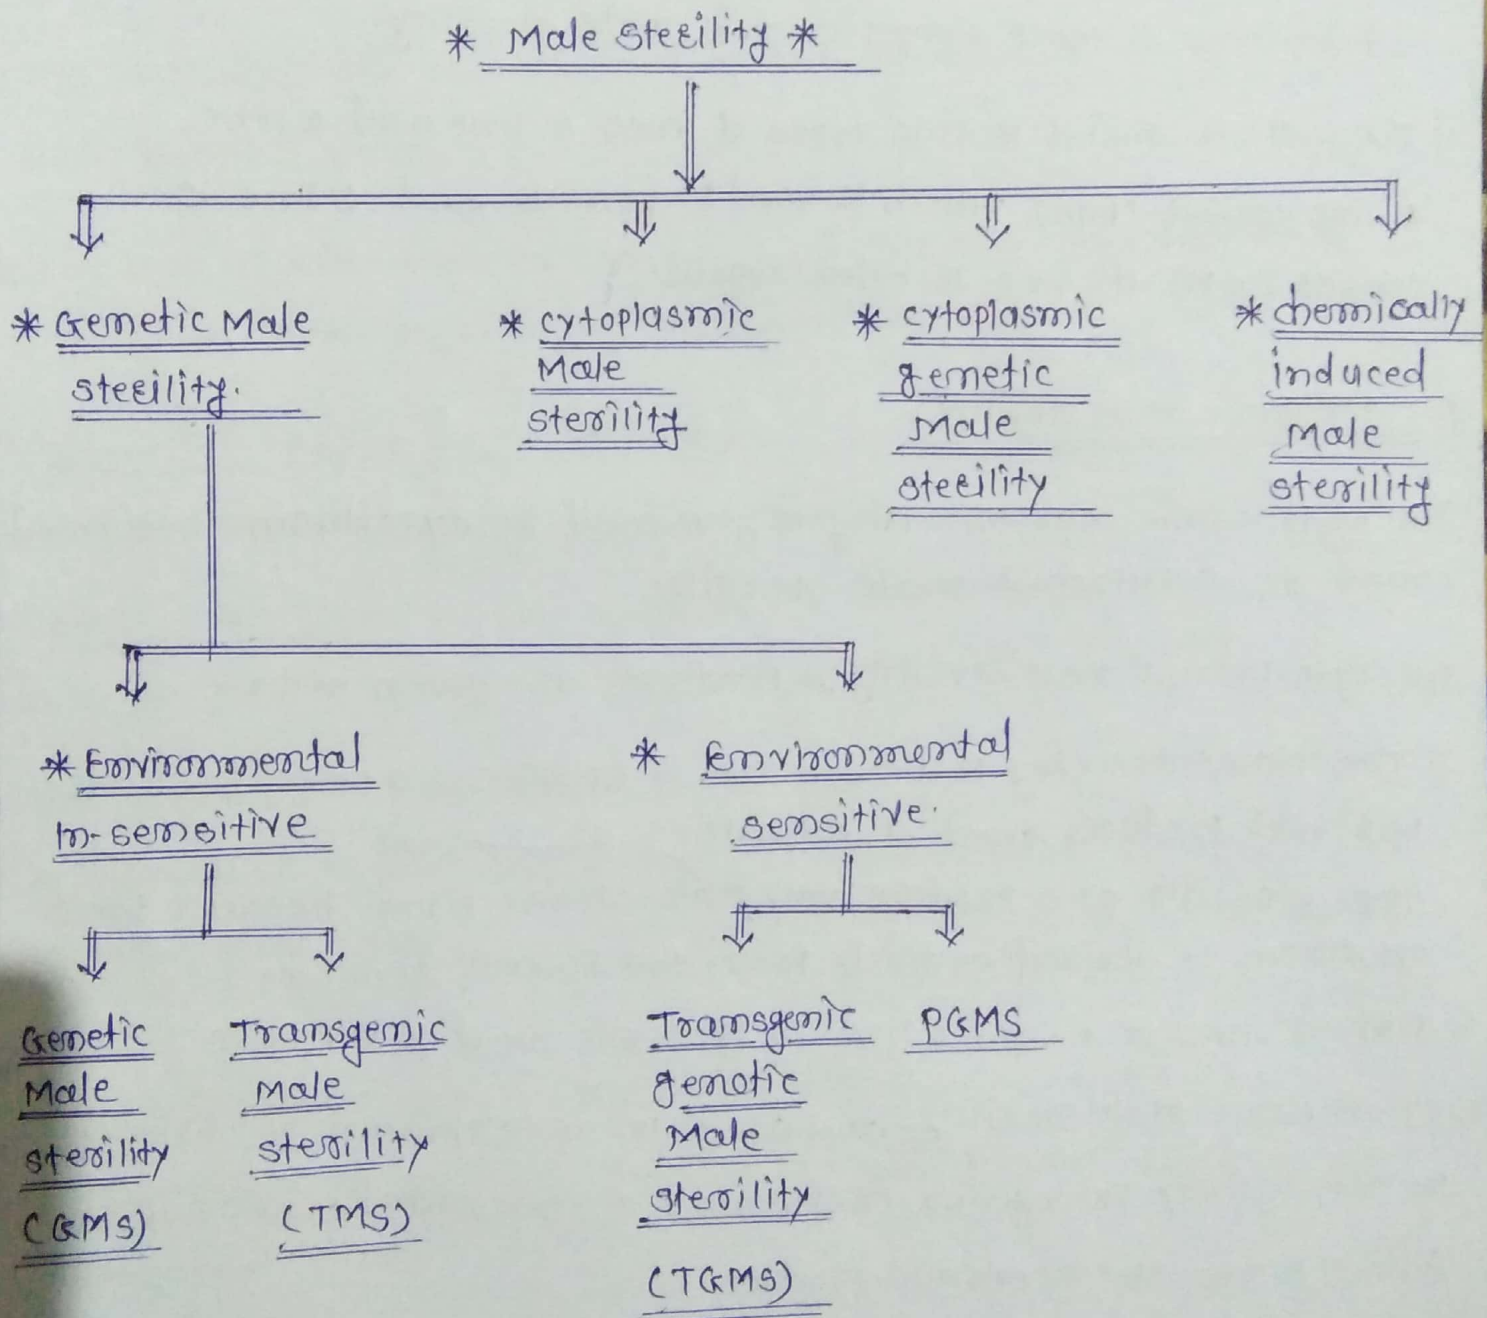 * Male sterility *
* Genetic Male
sterility.
* cytoplasmic
Male
sterility
* cytoplasmic
genetic
Male
sterility
* chemically
induced
Male
sterility
* Environmental
In-sensitive
* Environmental
sensitive.
Genetic
Male
sterility
(GMS)
Transgenic
Male
sterility
(TMS)
Transgenic
genetic
Male
sterility
(TGMS)
PGMS